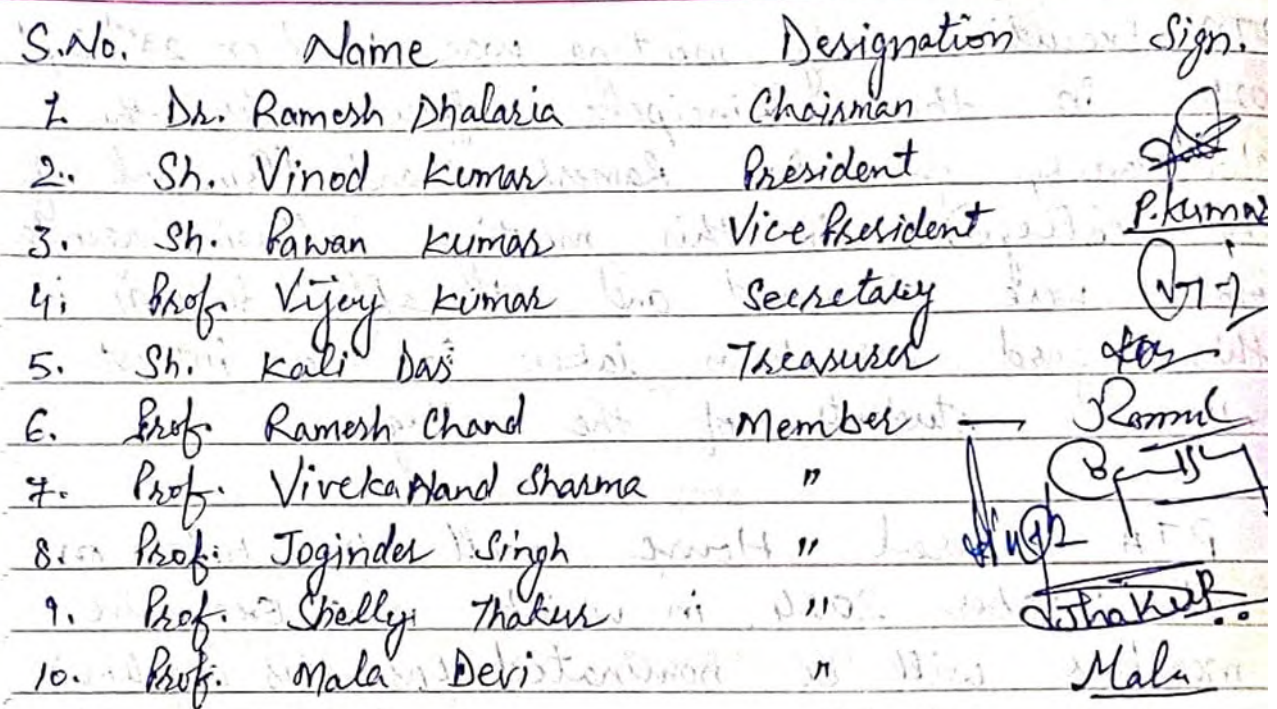 S.No. Name Designation Sign.
1. Dr. Ramesh Dhalaria Chairman
2. Sh. Vinod Kumar President
3. Sh. Pawan Kumar Vice President P.Kumar
4. Prof. Vijay Kumar Secretary
5. Sh. Kali Das Treasurer
6. Prof. Ramesh Chand Member —
7. Prof. VivekaNand Sharma "
8. Prof. Joginder Singh "
9. Prof. Shelly Thakur " Thakur
10. Prof. Mala Devi " Mala